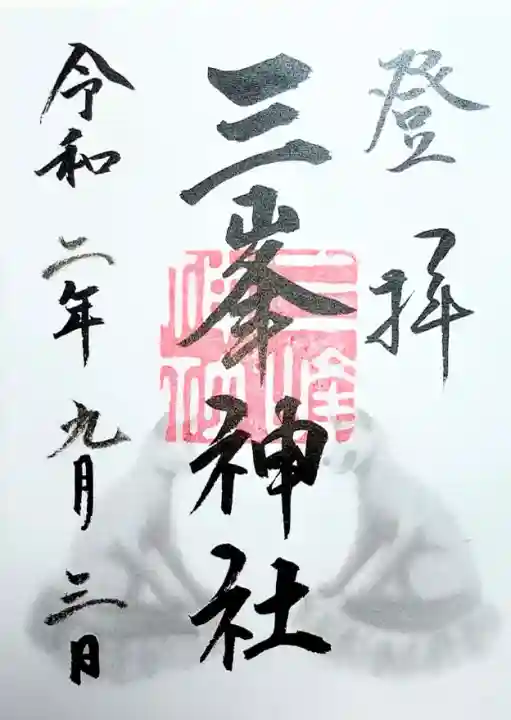 登拝
三峯神社
令和二年九月三日